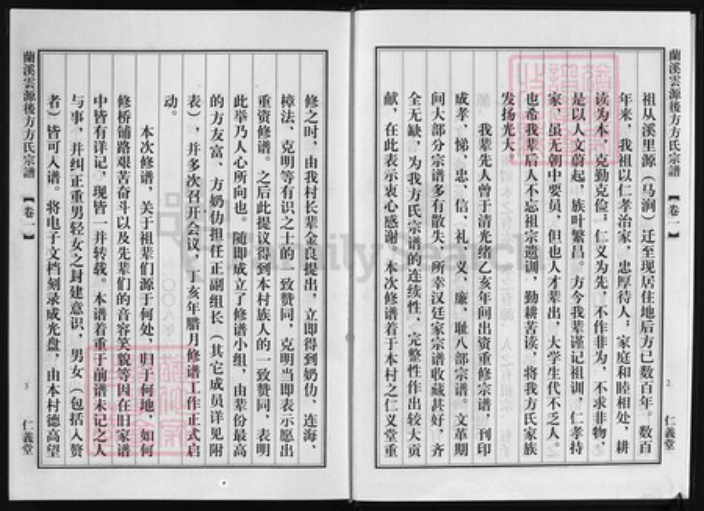 蘭溪雲源後方方氏宗譜
【卷一】
2
仁義堂
祖从溪里源（马涧）迁至现居住地后方已数百年。数百
年来，我祖以仁孝治家，忠厚待人；家庭和睦相处，耕
读为本，克勤克俭；仁义为先，不作非为，不求非物，
是以人文蔚起，族叶繁昌。方今我辈谨记祖训，仁孝持
家，虽无朝中要员，但也人才辈出，大学生代不乏人。
也希我辈后人不忘祖宗遗训，勤耕苦读，将我方氏家族
发扬光大。
我辈先人曾于清光绪乙亥年间出资重修宗谱，刊印
成孝、悌、忠、信、礼、义、廉、耻八部宗谱。文革期
间大部分宗谱多有散失，所幸汉廷家宗谱收藏甚好，齐
全无缺，为我方氏宗谱的连续性、完整性作出较大贡
献，在此表示衷心感谢。本次修谱着于本村之仁义堂重
蘭溪雲源後方方氏宗譜
【卷一】
3
仁義堂
修之时，由我村长辈金良提出，立即得到奶仂、连海、
樟法、克明等有识之士的一致赞同，克明当即表示愿出
重资修谱。之后此提议得到本村族人的一致赞同，表明
此举乃人心所向也。随即成立了修谱小组，由辈份最高
的方友富、方奶仂担任正副组长（其它成员详见附
表），并多次召开会议，丁亥年腊月修谱工作正式启
动。
本次修谱，关于祖辈们源于何处，归于何地，如何
修桥铺路艰苦奋斗以及先辈们的音容笑貌等因在旧家谱
中皆有详记，现皆一并转载。本谱着重于前谱未记之人
与事，并纠正重男轻女之封建意识，男女（包括入赘
者）皆可入谱。将电子文档刻录成光盘，由本村德高望
FamilySearch